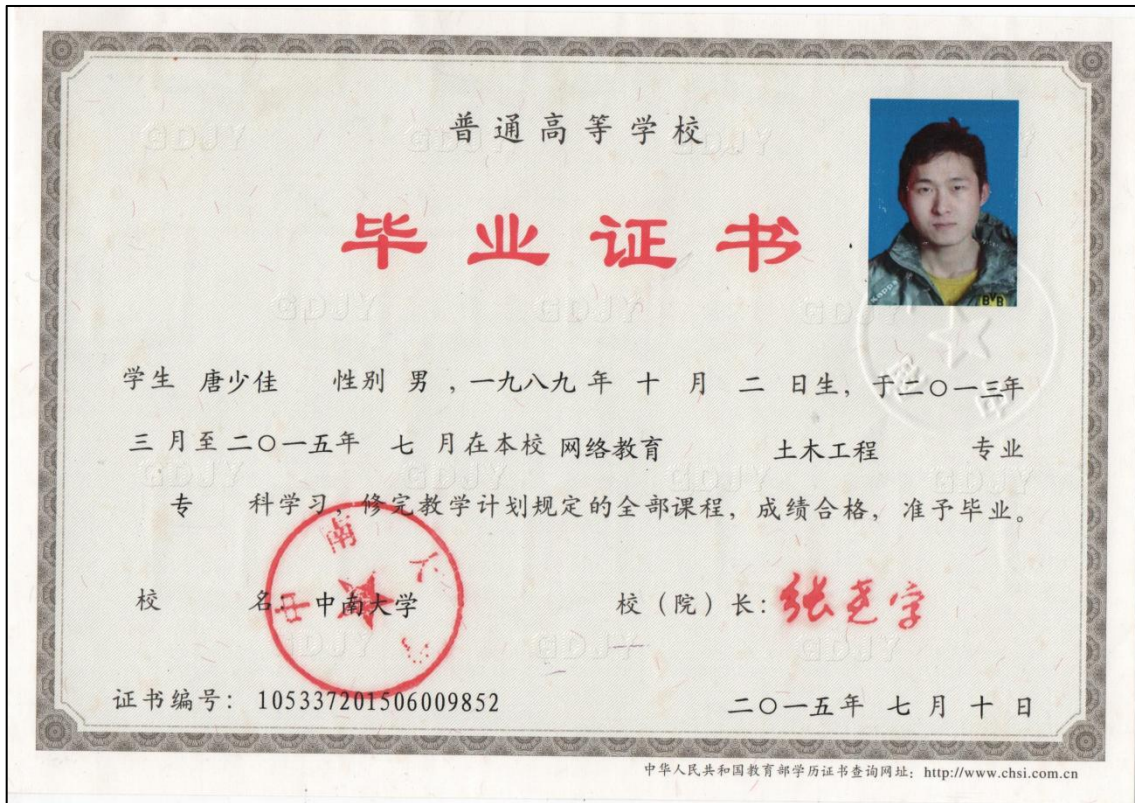 普通高等学校
毕业证书
学生 唐少佳 性别 男 ，一九八九 年 十 月 二 日生，于二〇一三年
三 月至二〇一五年 七 月在本校 网络教育 土木工程 专业
专 科学习，修完教学计划规定的全部课程，成绩合格，准予毕业。
校 名 中南大学
中南大学
校（院）长：张尧学
证书编号：105337201506009852
二〇一五年 七 月 十 日
中华人民共和国教育部学历证书查询网址：http://www.chsi.com.cn
GDJY
BVB